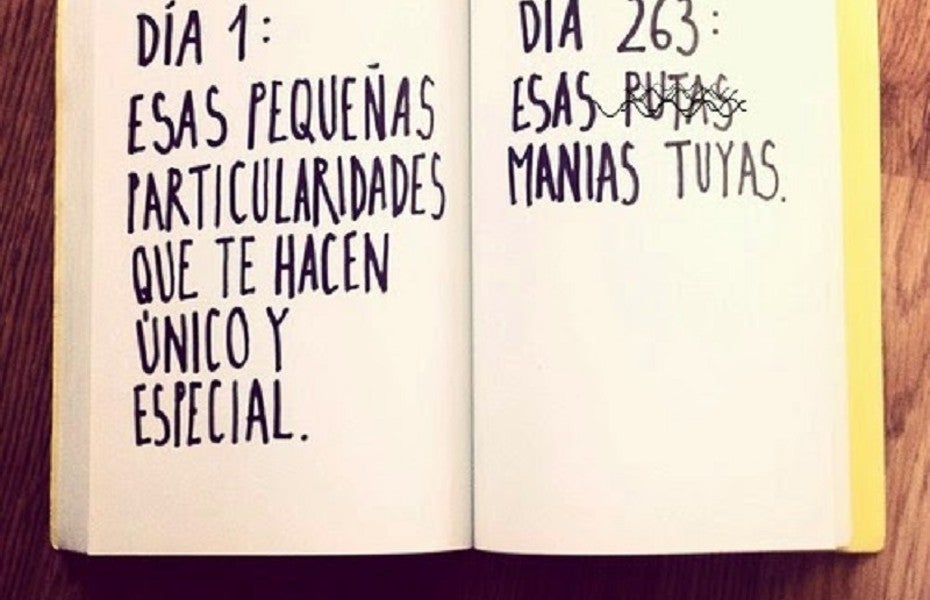 DÍA 1:
ESAS PEQUEÑAS
PARTICULARIDADES
QUE TE HACEN
ÚNICO Y
ESPECIAL.
DIA 263:
ESAS PUTAS
MANIAS TUYAS.